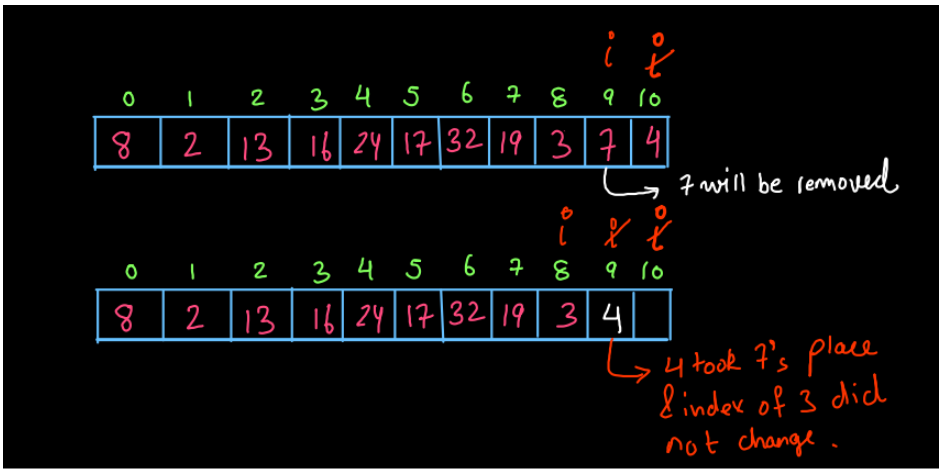 i i
0 1 2 3 4 5 6 7 8 9 10
8 2 13 16 24 17 32 19 3 7 4
7 will be removed
i i i
0 1 2 3 4 5 6 7 8 9 10
8 2 13 16 24 17 32 19 3 4
4 took 7's place
& index of 3 did
not change.